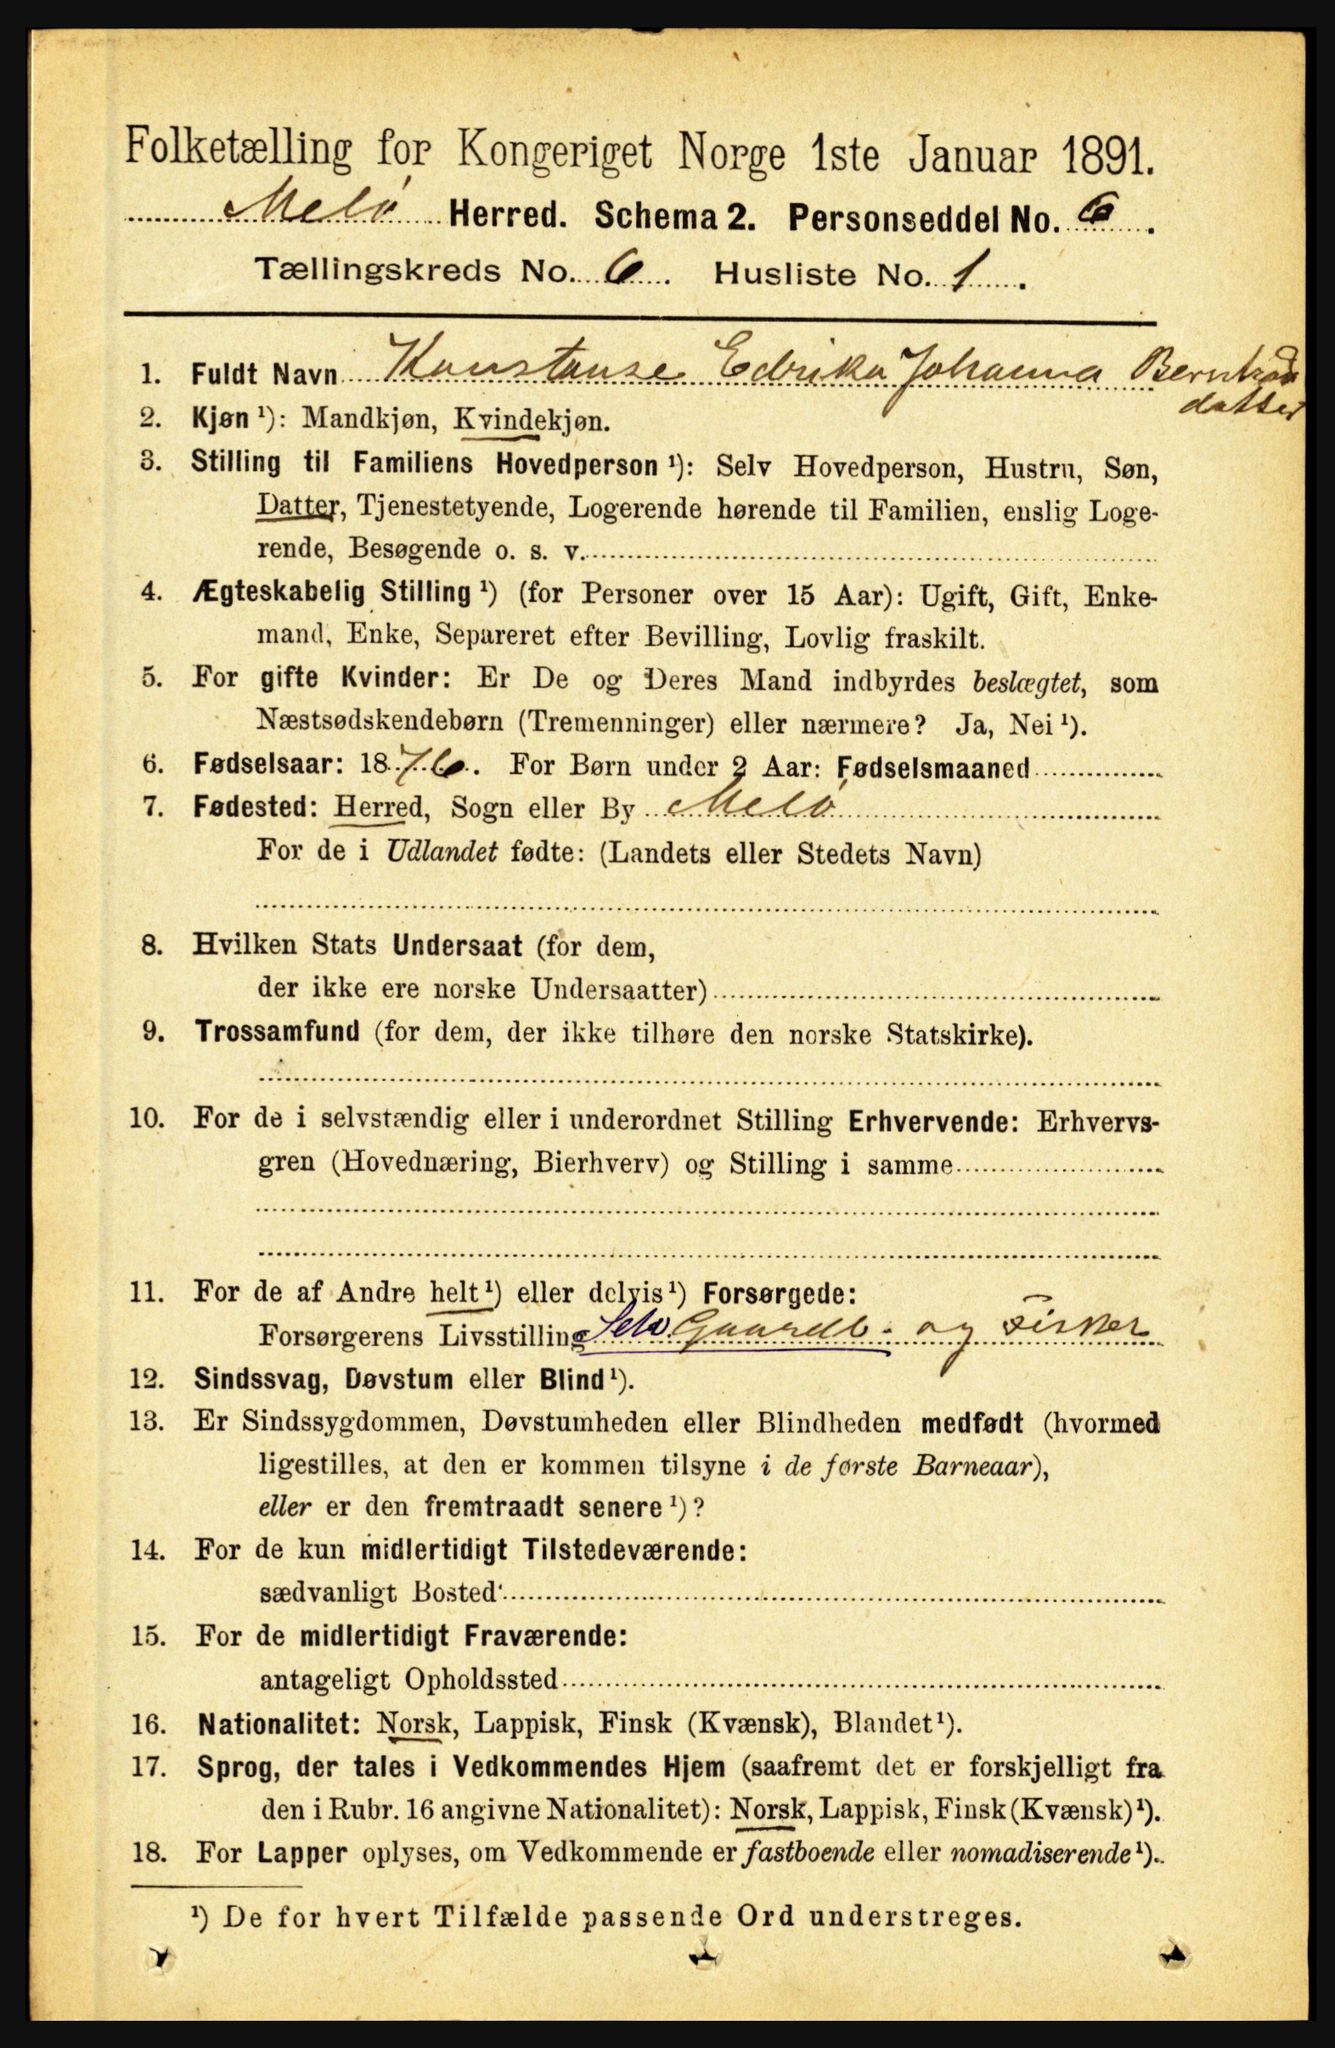 Folketælling for Kongeriget Norge 1ste Januar 1891.
Melø Herred. Schema 2. Personseddel No. 6.
Tællingskreds No. 6. Husliste No. 1.
1. Fuldt Navn Konstanse Edrika Johanna
datter
2. Kjøn ¹): Mandkjøn, Kvindekjøn.
3. Stilling til Familiens Hovedperson ¹): Selv Hovedperson, Hustru, Søn,
Datter, Tjenestetyende, Logerende hørende til Familien, enslig Loge-
rende, Besøgende o. s. v.
4. Ægteskabelig Stilling ¹) (for Personer over 15 Aar): Ugift, Gift, Enke-
mand, Enke, Separeret efter Bevilling, Lovlig fraskilt.
5. For gifte Kvinder: Er De og Deres Mand indbyrdes beslægtet, som
Næstsødskendebørn (Tremenninger) eller nærmere? Ja, Nei ¹).
6. Fødselsaar: 1876. For Børn under 2 Aar: Fødselsmaaned
7. Fødested: Herred, Sogn eller By Melø
For de i Udlandet fødte: (Landets eller Stedets Navn)
8. Hvilken Stats Undersaat (for dem,
der ikke ere norske Undersaatter)
9. Trossamfund (for dem, der ikke tilhøre den norske Statskirke).
10. For de i selvstændig eller i underordnet Stilling Erhvervende: Erhvervs-
gren (Hovednæring, Bierhverv) og Stilling i samme
11. For de af Andre helt ¹) eller delvis ¹) Forsørgede:
Forsørgerens Livsstilling Selv Gaardb. og Fisker
12. Sindssvag, Døvstum eller Blind ¹).
13. Er Sindssygdommen, Døvstumheden eller Blindheden medfødt (hvormed
ligestilles, at den er kommen tilsyne i de første Barneaar),
eller er den fremtraadt senere ¹)?
14. For de kun midlertidigt Tilstedeværende:
sædvanligt Bosted
15. For de midlertidigt Fraværende:
antageligt Opholdssted
16. Nationalitet: Norsk, Lappisk, Finsk (Kvænsk), Blandet ¹).
17. Sprog, der tales i Vedkommendes Hjem (saafremt det er forskjelligt fra
den i Rubr. 16 angivne Nationalitet): Norsk, Lappisk, Finsk (Kvænsk) ¹).
18. For Lapper oplyses, om Vedkommende er fastboende eller nomadiserende ¹).
¹) De for hvert Tilfælde passende Ord understreges.